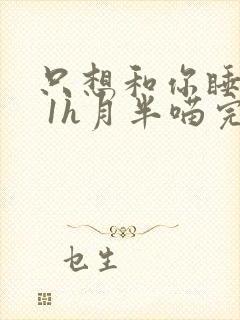 只想和你睡
1h月半喵完
乜生